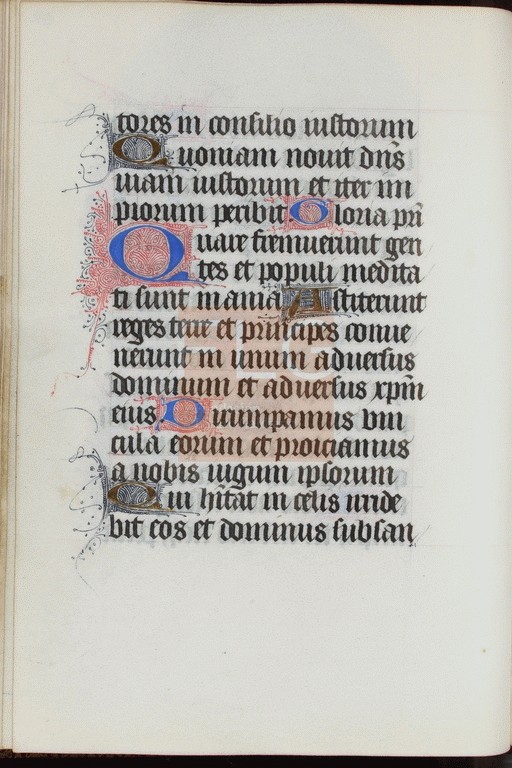 tores in consilio iustorum
Quoniam nouit dn̄s
uiam iustorum et iter im
piorum peribit. Gloria pr̄i
Quare fremuerunt gen
tes et populi medita
ti sunt inania Astiterunt
reges terre et principes conue
nerunt in unum aduersus
dominum et aduersus xpm̄
eius Dirumpamus uin
cula eorum et proiciamus
a nobis iugum ipsorum
Qui hītat in celis irride
bit eos et dominus subsan